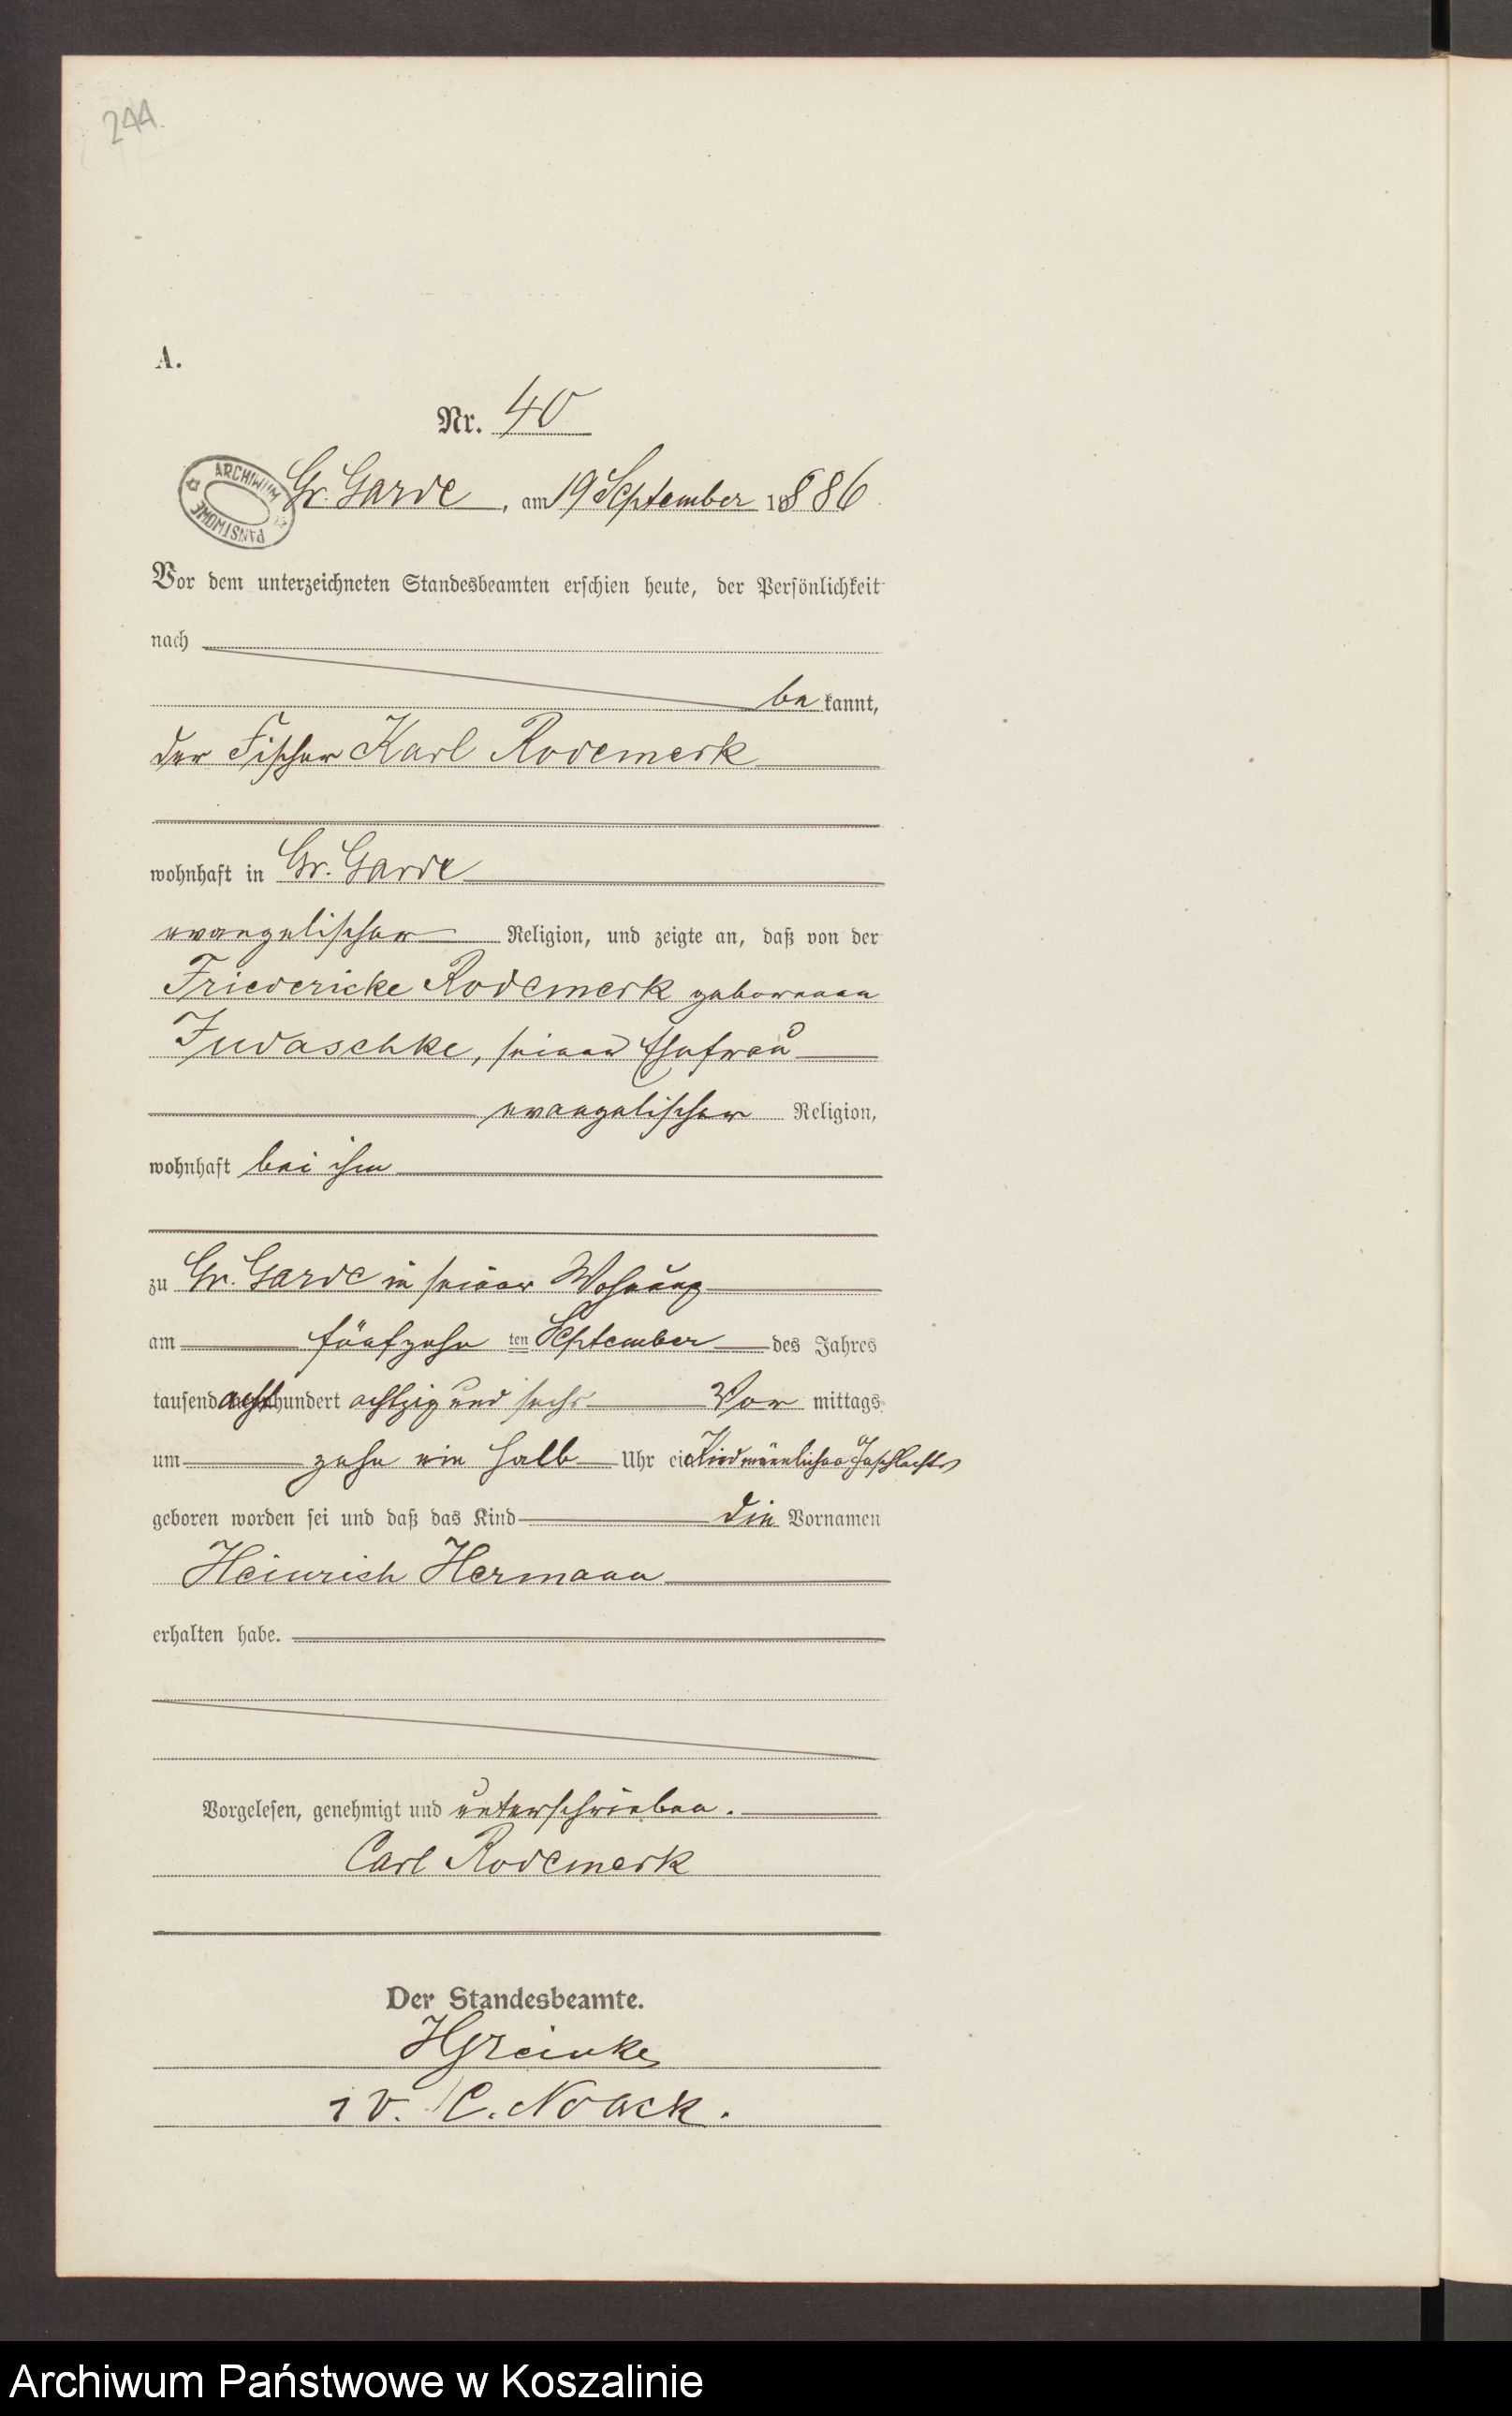 244.
A.
Nr. 40
ARCHIWUM PAŃSTWOWE
Gr. Garde, am 19 September 1886
Vor dem unterzeichneten Standesbeamten erschien heute, der Persönlichkeit
nach
be kannt,
der Fischer Karl Rodemerk
wohnhaft in Gr. Garde
evangelischer Religion, und zeigte an, daß von der
Friedericke Rodemerk geborenen
Judaschke, seiner Ehefrau
evangelischer Religion,
wohnhaft bei ihm
zu Gr. Garde in seiner Wohnung
am fünfzehn ten September des Jahres
tausend acht hundert achtzig und sechs Vor mittags
um zehn ein halb Uhr ein Kind männlichen Geschlechts
geboren worden sei und daß das Kind die Vornamen
Heinrich Hermann
erhalten habe.
Vorgelesen, genehmigt und unterschrieben.
Carl Rodemerk
Der Standesbeamte.
HGreinke
i V. C. Noack.
Archiwum Państwowe w Koszalinie